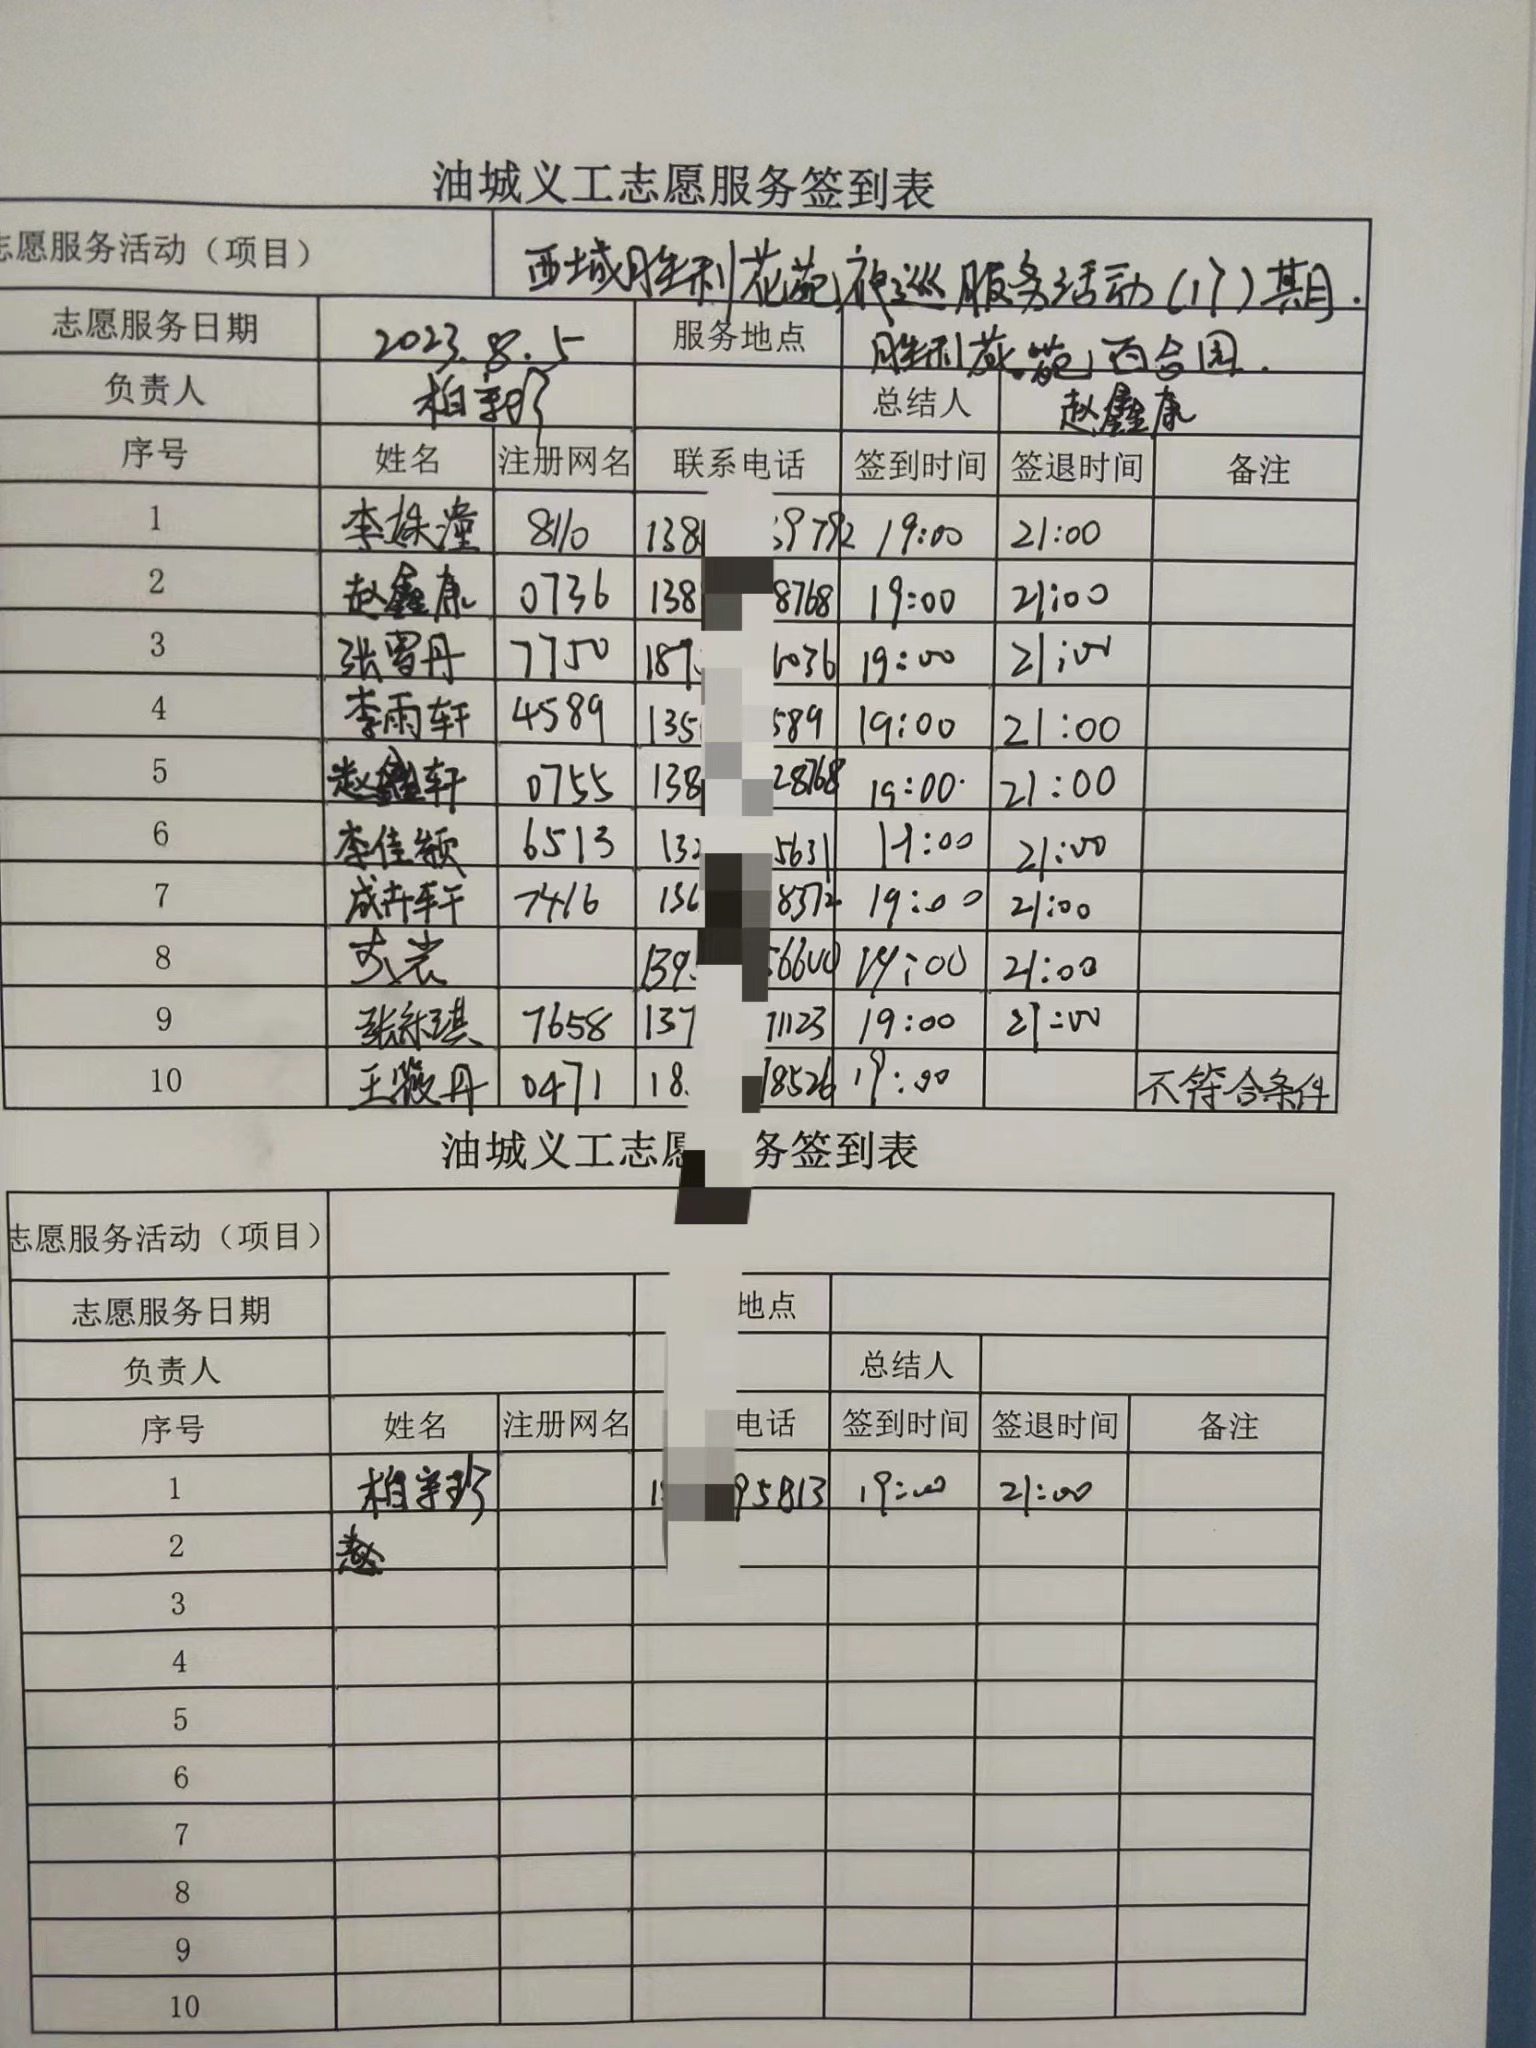 油城义工志愿服务签到表
志愿服务活动（项目） 西城胜利花苑夜巡服务活动（17）期.
志愿服务日期 2023.8.5 服务地点 胜利花苑百合园.
负责人 柏 总结人 赵鑫康
序号 姓名 注册网名 联系电话 签到时间 签退时间 备注
1 李姝潼 8110 138 59792 19:00 21:00
2 赵鑫康 0736 138 8768 19:00 21:00
3 张雪丹 7750 187 6036 19:00 21:00
4 李雨轩 4589 135 589 19:00 21:00
5 赵鑫轩 0755 138 28768 19:00 21:00
6 李佳颖 6513 132 5631 19:00 21:00
7 成卉轩 7416 136 8372 19:00 21:00
8 139 56600 19:00 21:00
9 张 琪 7658 137 71123 19:00 21:00
10 王薇丹 0471 18 18526 19:00 不符合条件
油城义工志愿 务签到表
志愿服务活动（项目）
志愿服务日期 地点
负责人 总结人
序号 姓名 注册网名 电话 签到时间 签退时间 备注
1 柏 1 95813 19:00 21:00
2
3
4
5
6
7
8
9
10